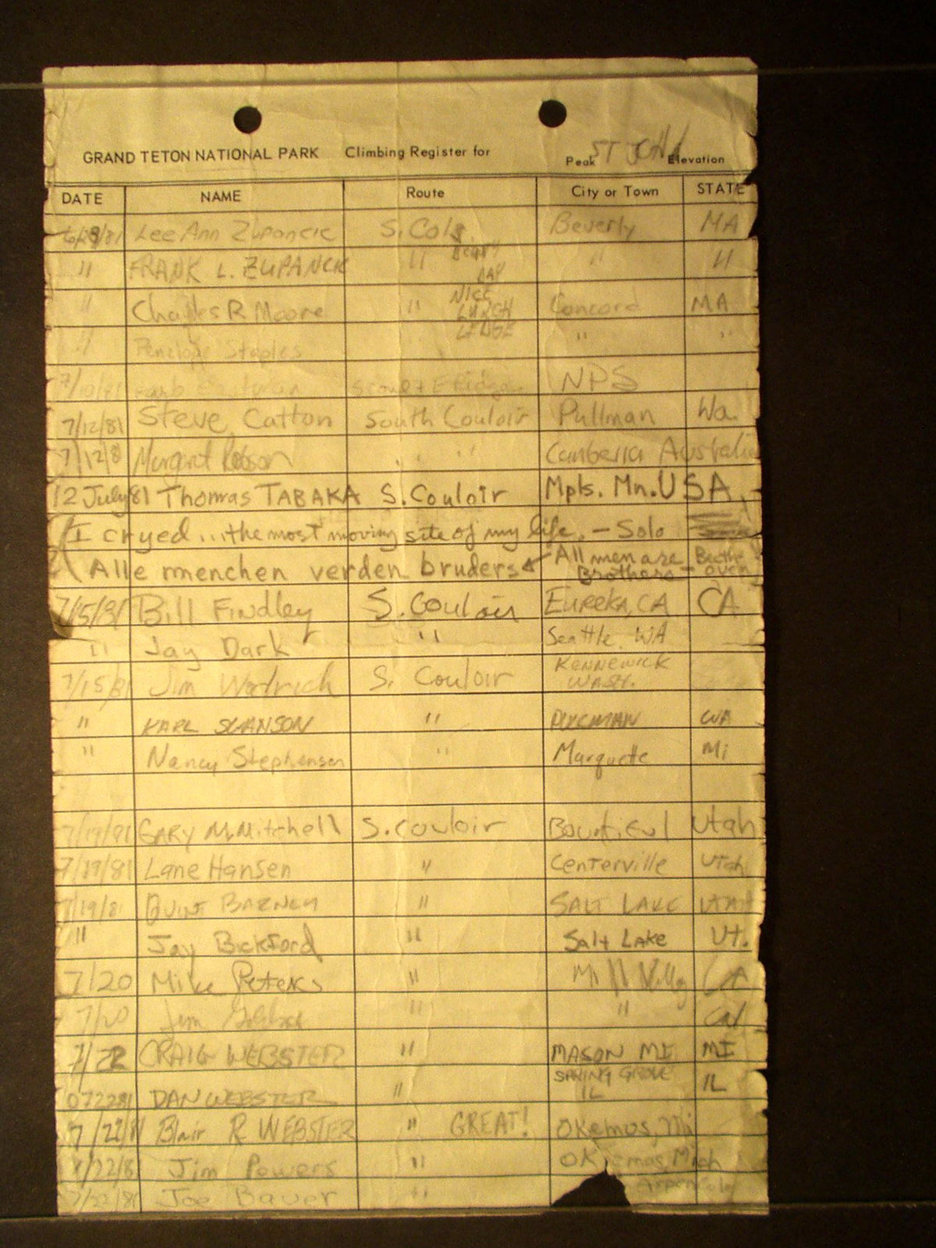 GRAND TETON NATIONAL PARK Climbing Register for Peak ST JOHN Elevation
DATE NAME Route City or Town STATE
6/28/81 LeeAnn Zupancic S. Cols Beverly MA
" FRANK L. ZUPANCIC " SCARY RAP " "
" Charles R Moore " NICE LUNCH LEDGE Concord MA
" Penelope Staples " "
7/10/81 E Ridge NPS
7/12/81 Steve Catton South Couloir Pullman Wa.
7/12/8 Margaret Robson " " Canberra Australia
12 July 81 Thomas TABAKA S. Couloir Mpls. Mn. USA
(I cryed...the most moving site of my life. - Solo
Alle menchen verden bruders All men are Brothers - Beethoven
7/15/81 Bill Findley S. Couloir EUREKA, CA CA
" Jay Dark " Seattle, WA
7/15/81 Jim Wodrich S. Couloir KENNEWICK WASH.
" KARL SWANSON " PULLMAN WA
" Nancy Stephensen " Marquette Mi
7/19/81 GARY M. Mitchell S. Couloir Bountiful Utah
7/19/81 Lane Hansen " Centerville Utah
7/19/81 BARNEY " SALT LAKE UTAH
" Jay Bickford " Salt Lake Ut.
7/20 Mike Peters " Mill Valley CA
7/20 Jim " " Cal
7/22 CRAIG WEBSTER " MASON MI MI
072281 DAN WEBSTER " SPRING GROVE IL IL
7/22/81 Blair R WEBSTER " GREAT! Okemos, Mi
7/22/8 Jim Powers " Okemos Mich
7/22/81 Joe Bauer "